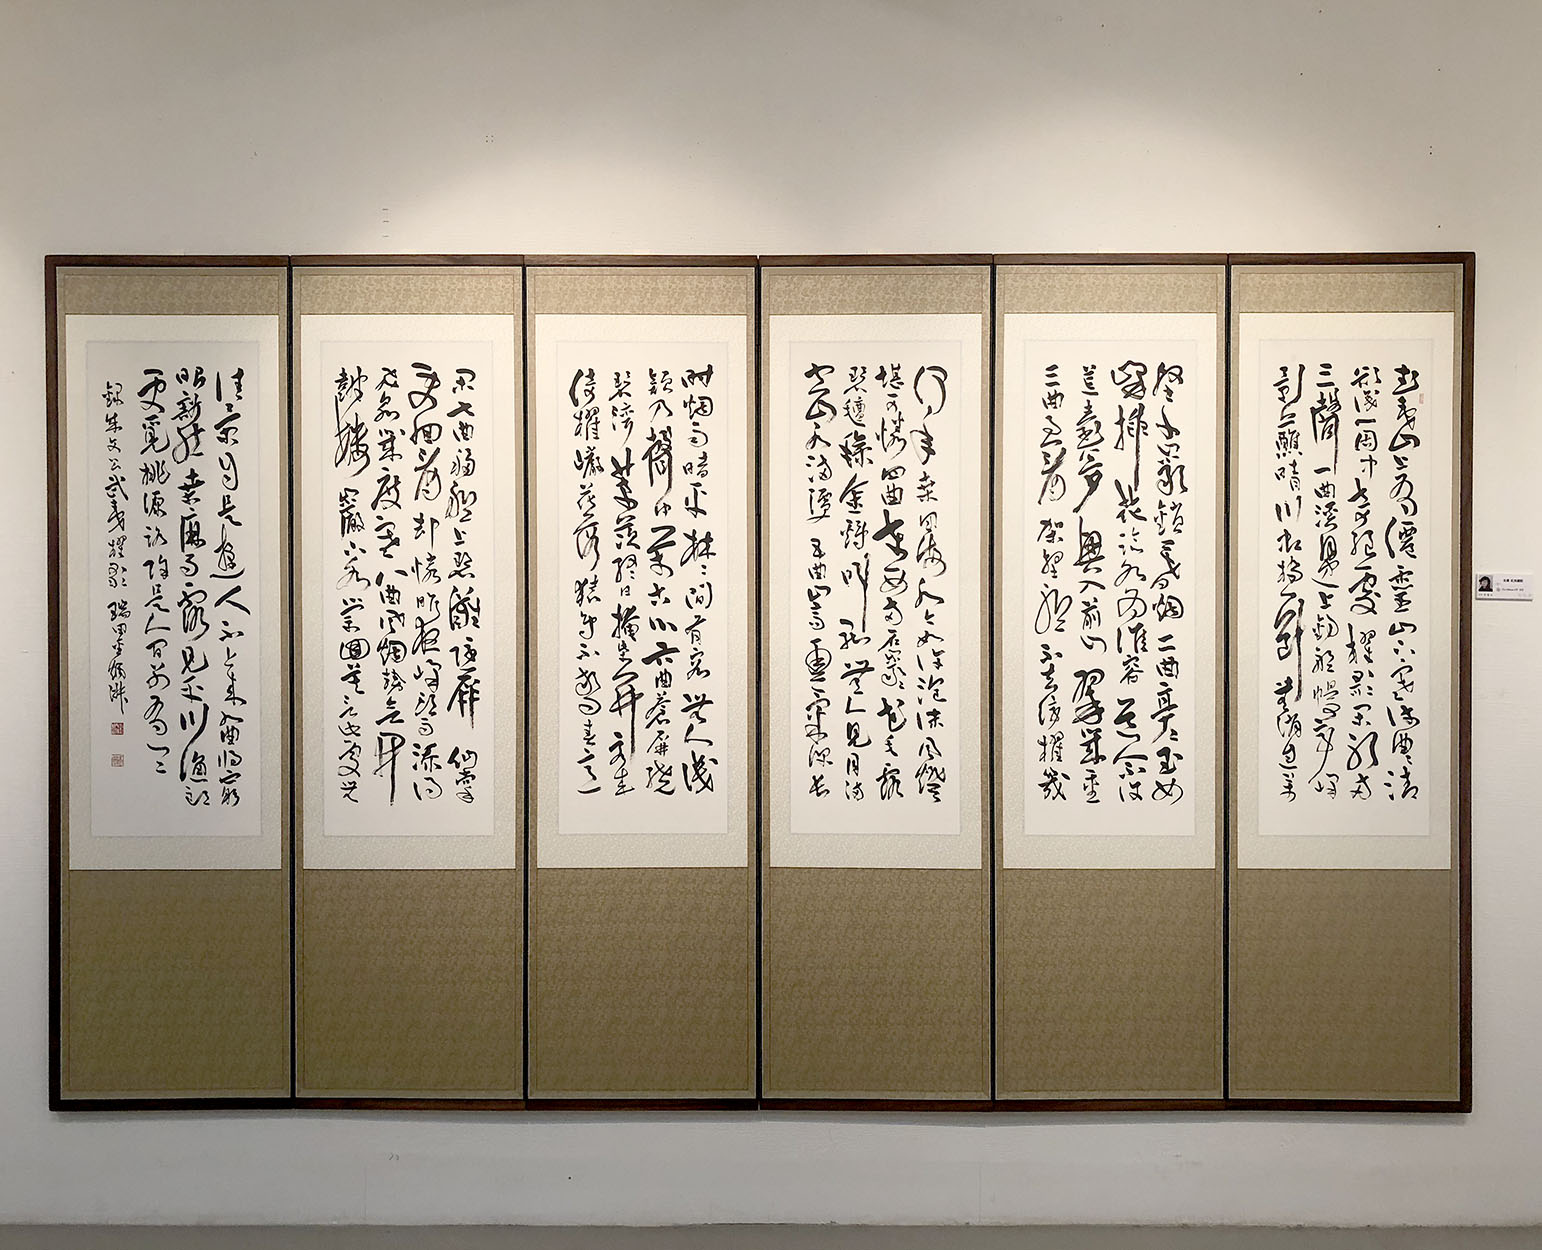 武夷山上有僊靈山下寒流曲曲清
欲識箇中奇絶處櫂歌閑聽兩
三聲一曲溪邊上釣船幔亭峰
影蘸晴川虹橋一斷無消息萬
壑千巖鎖暮烟二曲亭亭玉女
峰插花臨水爲誰容道人不復
荒臺夢興入前山翠幾重
三曲君看架壑船不知停櫂幾
何年桑田海水今如許泡沫風燈
堪可憐四曲東西兩石巖巖花垂露
碧氈毿金鷄叫罷無人見月滿
空山水滿潭五曲山高雲氣深長
時烟雨暗平林林間有客無人識
欸乃聲中萬古心六曲蒼屏繞
碧灣茅茨終日掩柴關客來
倚櫂巖花落猿鳥不驚春意
閑七曲移船上碧灘隱屏仙掌
更回看却憐昨夜峰頭雨添得
飛泉幾度寒八曲風烟勢欲開
鼓樓巖下水縈回莫言此處無
佳景自是遊人不上來九曲將窮
眼豁然桑麻雨露見平川漁郎
更覓桃源路除是人間別有天
錄朱文公武夷櫂歌 瑞田